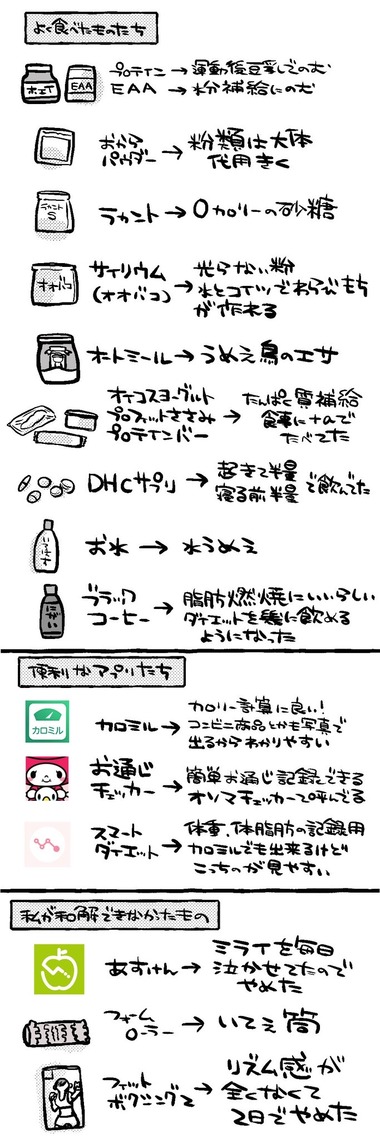 よく食べたものたち
ホエイ
EAA
プロテイン→運動後豆乳でのむ
EAA→水分補給にのむ
おから
パウダー→粉類は大体
代用きく
ラカント
S
ラカント→0カロリーの砂糖
オオバコ
サイリウム
(オオバコ)→光らない粉
水とコイツでわらびもち
が作れる
オートミール→うめえ鳥のエサ
オイコスヨーグルト
プロフィットささみ
プロテインバー→たんぱく質補給
食事に+αで
たべてた
DHCサプリ→起きて半量
寝る前半量で飲んでた
お水→水うめえ
にがい
ブラック
コーヒー→脂肪燃焼にいいらしい
ダイエットを機に飲める
ようになった
便利なアプリたち
カロミル
カロミル→カロリー計算に良い!
コンビニ商品とかも写真で
出るからわかりやすい
お通じ
チェッカー→簡単お通じ記録できる
オソマチェッカーて呼んでる
スマート
ダイエット→体重、体脂肪の記録用
カロミルでも出来るけど
こっちのが見やすい
私が和解できなかったもの
あすけん→ミライを毎日
泣かせてたので
やめた
フォーム
ローラー→いてえ筒
フィット
ボクシング2→リズム感が
全くなくて
2日でやめた